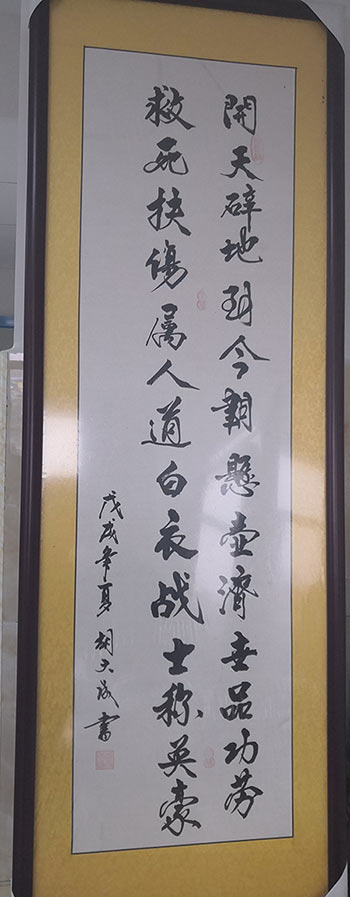 開天辟地到今朝懸壶濟世品功劳
救死扶傷属人道白衣战士称英豪
戊戌年夏胡天成書